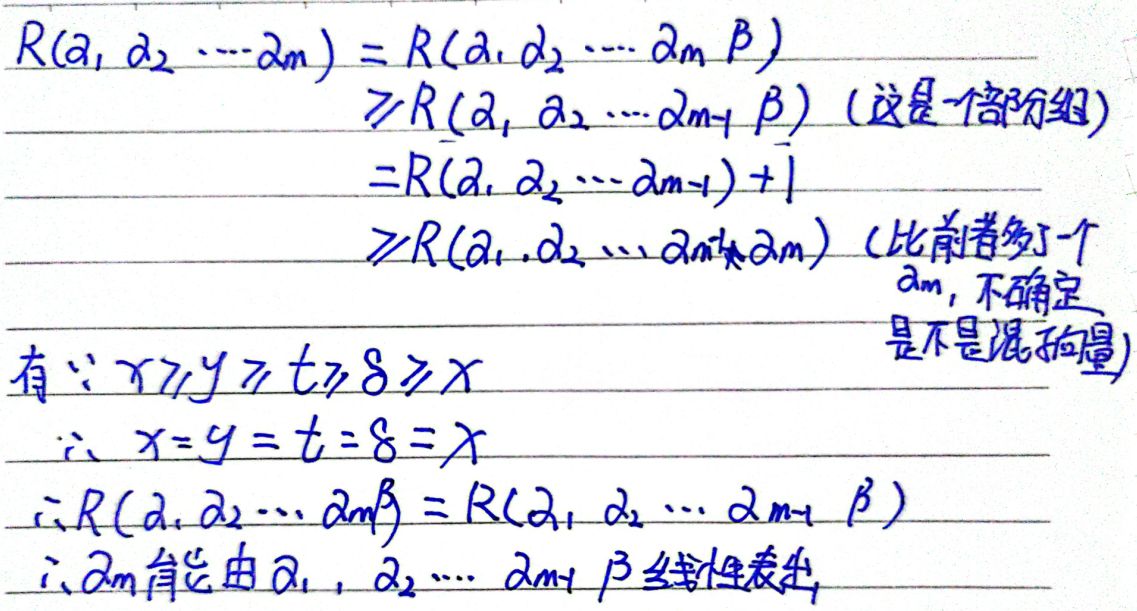 R(α₁ α₂ ····αm) = R(α₁ α₂ ···· αm β)
≥R(α₁ α₂ ···· αm-1 β) (这是一个部分组)
=R(α₁ α₂ ··· αm-1)+1
≥R(α₁,α₂ ··· αm-1 αm) (比前者多了一个
αm, 不确定
是不是混子向量)
有∵ x≥y≥t≥8≥x
∴ x=y=t=8=x
∴R(α₁ α₂ ··· αmβ) = R(α₁ α₂ ··· αm-1 β)
∴αm能由α₁, α₂ ···· αm-1 β线性表出,